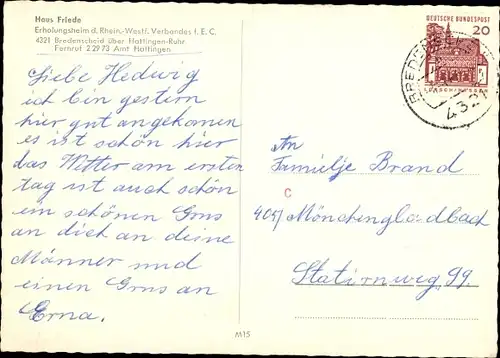 Haus Friede
Erholungsheim d. Rhein.-Westf. Verbandes f. E. C.
4321 Bredenscheid über Hattingen-Ruhr
Fernruf 2 29 73 Amt Hattingen
Liebe Hedwig
ich bin gestern
hier gut angekomen
es ist schön hier
das Wetter am ersten
tag ist auch schön
ein schönen Grus
an dich an deine
Männer und
einen Grus an
Erna.
M15
DEUTSCHE BUNDESPOST
20
4321
An
Familje Brand
C
4051 Mönchengladbach
Stationweg 99.